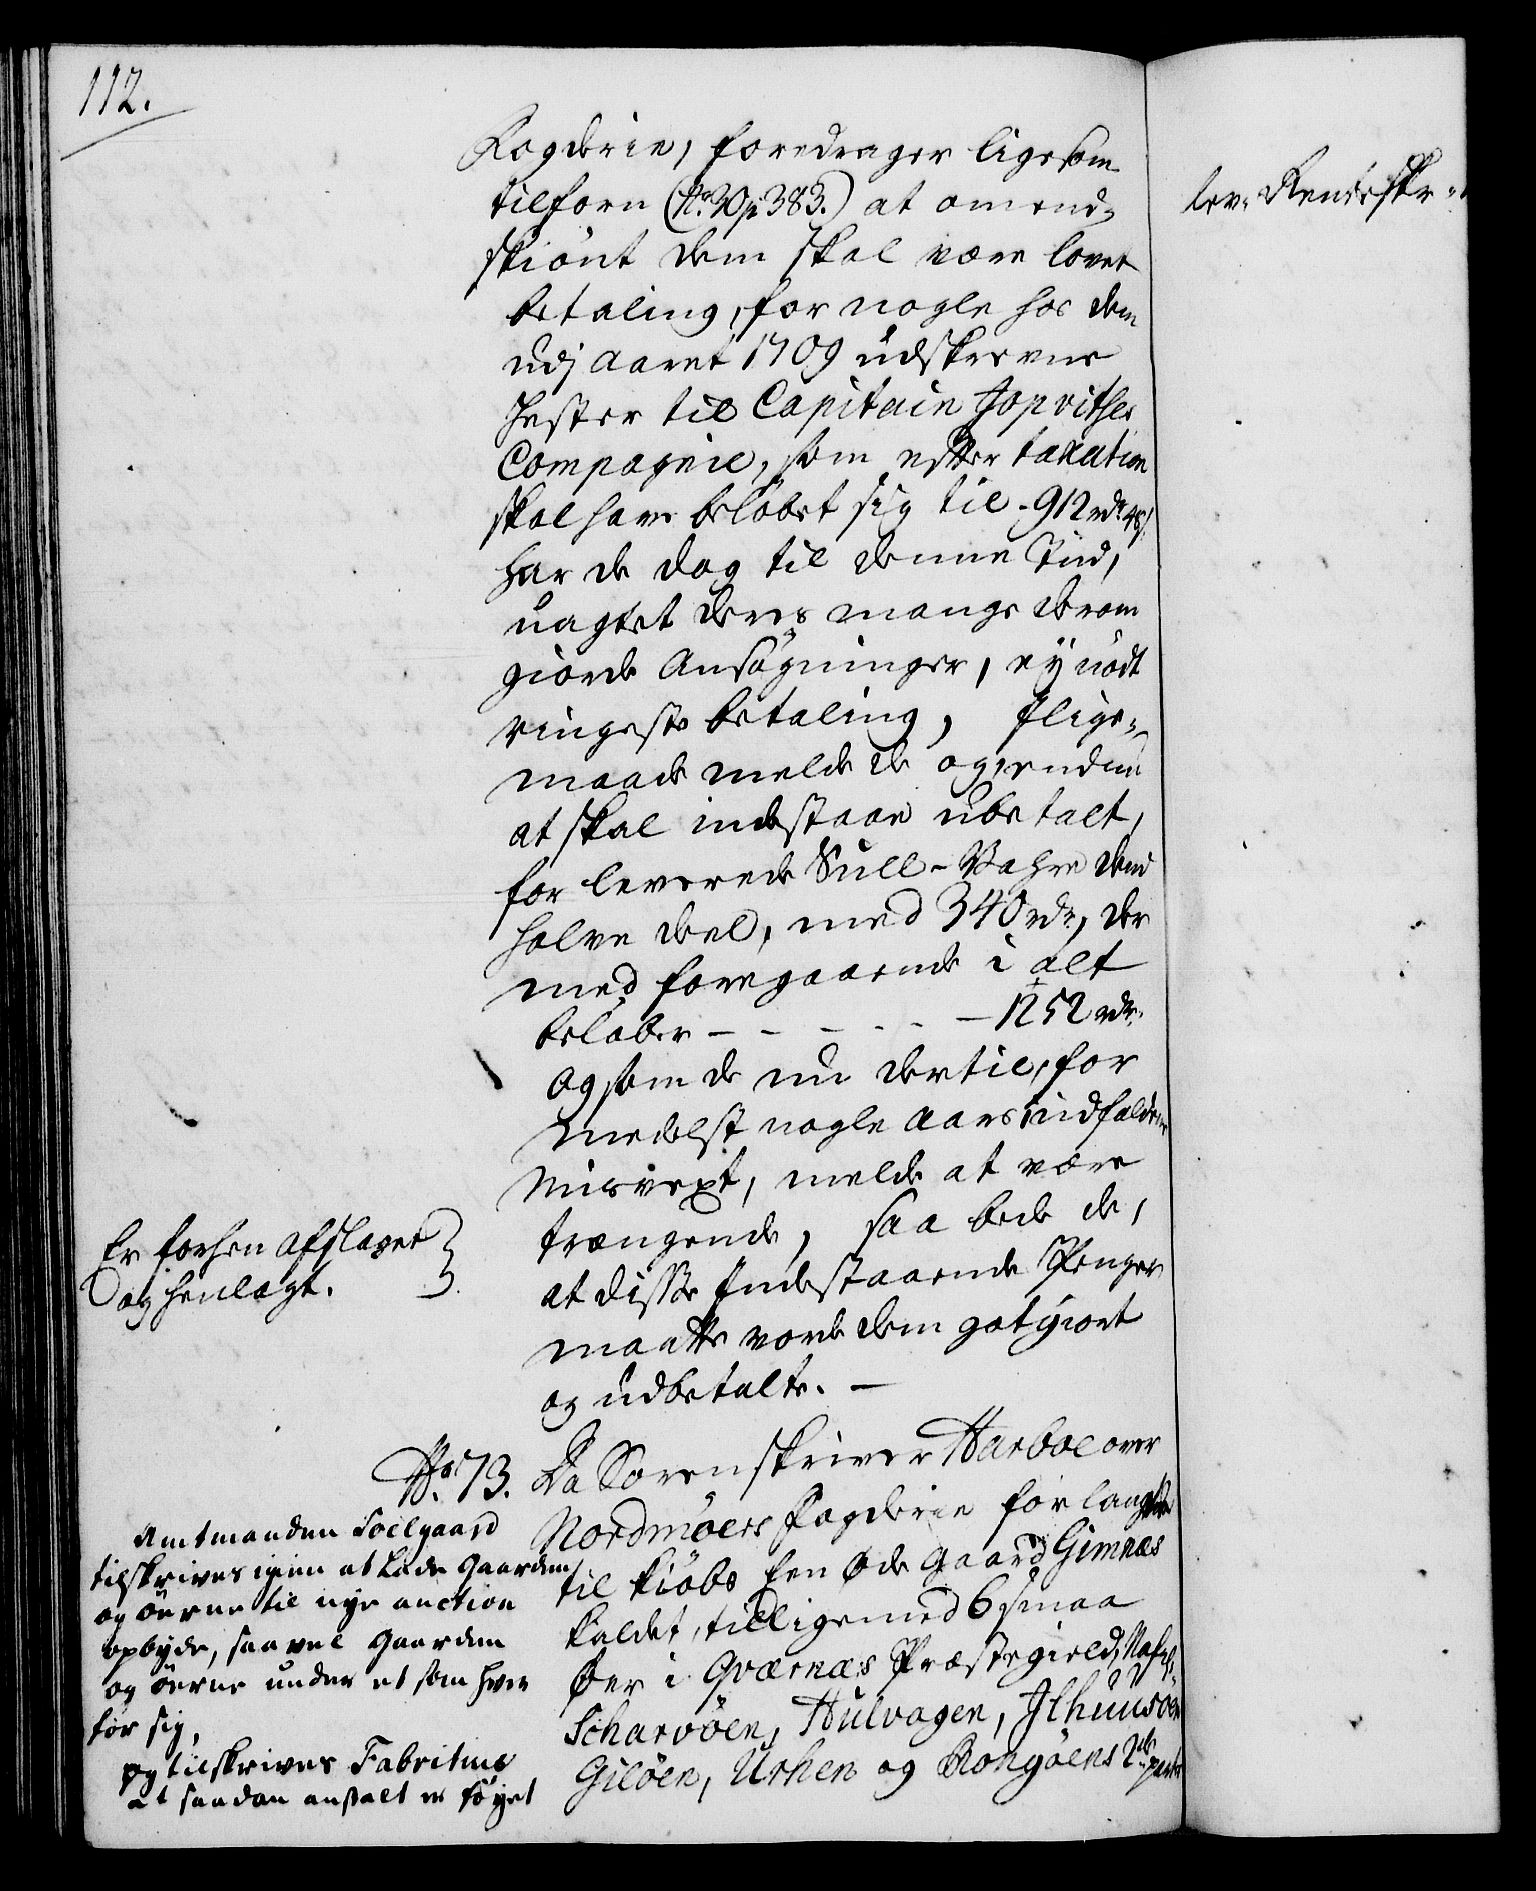 112.
Fogderie, foredrager ligesom
tilforn (No. 30 p. 383.) at omend-
skiönt dem skal være lovet
betaling, for nogle hos dem
udj Aaret 1709 udskrevne
Hester til Capitain Jopvithes
Compagnie, som efter taxation
skal have beløbet sig til - 912 rdr. 48 s.
har de dog til denne Tiid,
uagtet deres mange derom
giorde Ansögninger, ey nödt
ringeste betaling, Jlige-
maade melde de og, endnu
at skal indestaae ubetalt,
for leverede Vahre dend
halve deel, med 340 rdr., der
med foregaaende i alt
beløber - - - - - - 1252 rdr.
og som de nu dertil, for
medelst nogle Aars indfaldene
Misvext, melde at være
trængende, saa bede de,
at disse Indestaaende Penger
maatte vorde dem gotgiort
og udbetalte. -
Er forhen afslaget
og henlagt.
No. 73. Da Sorenskriver Harboe over
Nordmöers Fogderie forlangede
til kiöbs een Øde Gaard Gimnæs
kaldet, tilligemed 6 smaa
Øer i Qværnæs Præstegield, Nafnl:
Scharvöen, Hulvagen, Jlhuusöen
Gilöen, Urhen og Rongöens 2de parter
Amtmanden Soelgaard
tilskrives igien at lade Gaarden
og öerne til nye auction
opbyde, saavel Gaarden
og öerne under et som hver
for sig,
og tilskrives Fabritius
at saadan anstalt er föyet
lev: Renteskr: